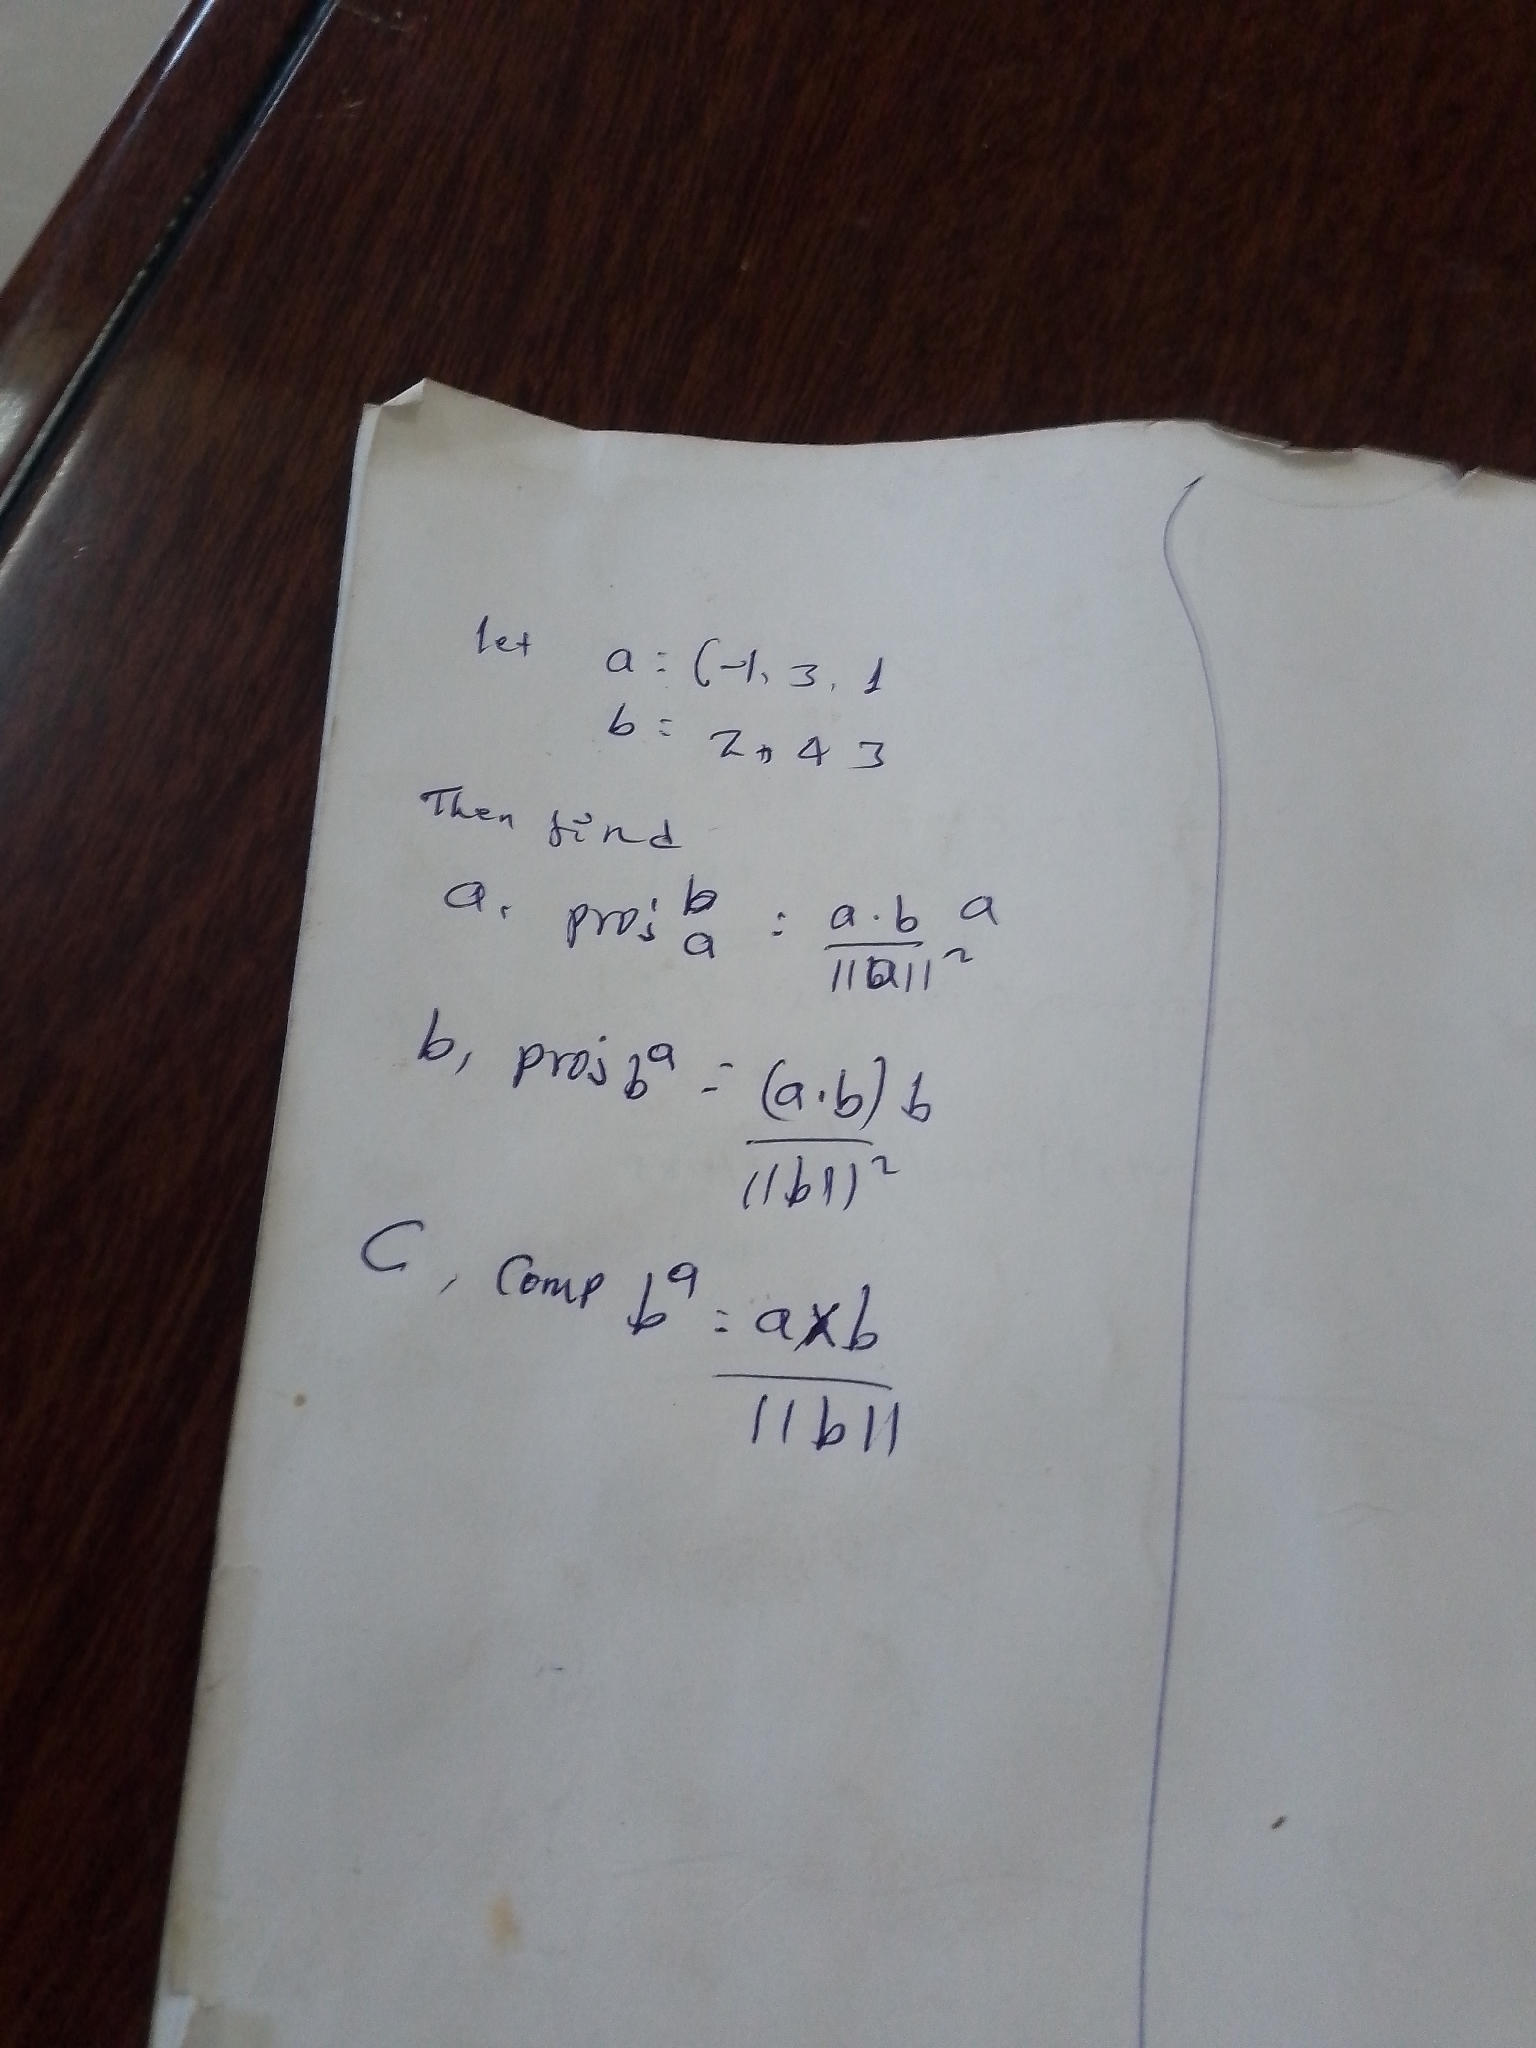 let a = (-1, 3, 1
b = 2, 4 3
Then find
a, proj b a = a·b a
||a||²
b, proj b a = (a·b) b
||b||²
C, Comp b a = a x b
||b||